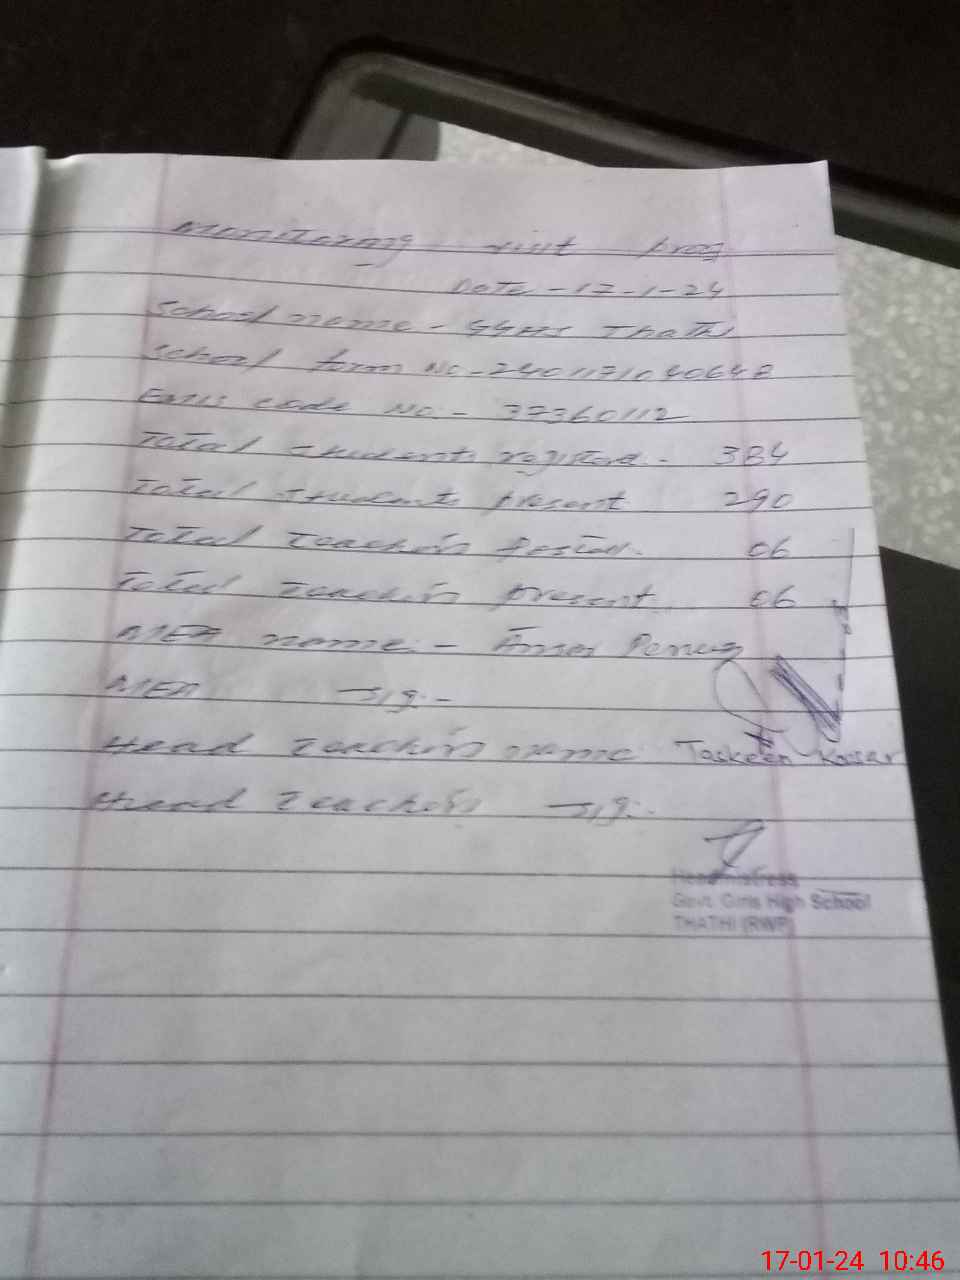 Monitoring visit prog
Date - 17-1-24
School name - GGHS Thathi
School form No - 2401171040648
Emis code No - 37360112
Total students register - 384
Total students present 290
Total Teachers 06
Total Teachers present 06
MEA name - 
MEA sig -
Head Teachers name Taskeen Kosar
Head Teachers sig.
Headmistress
Govt. Girls High School
THATHI (RWP)
17-01-24 10:46